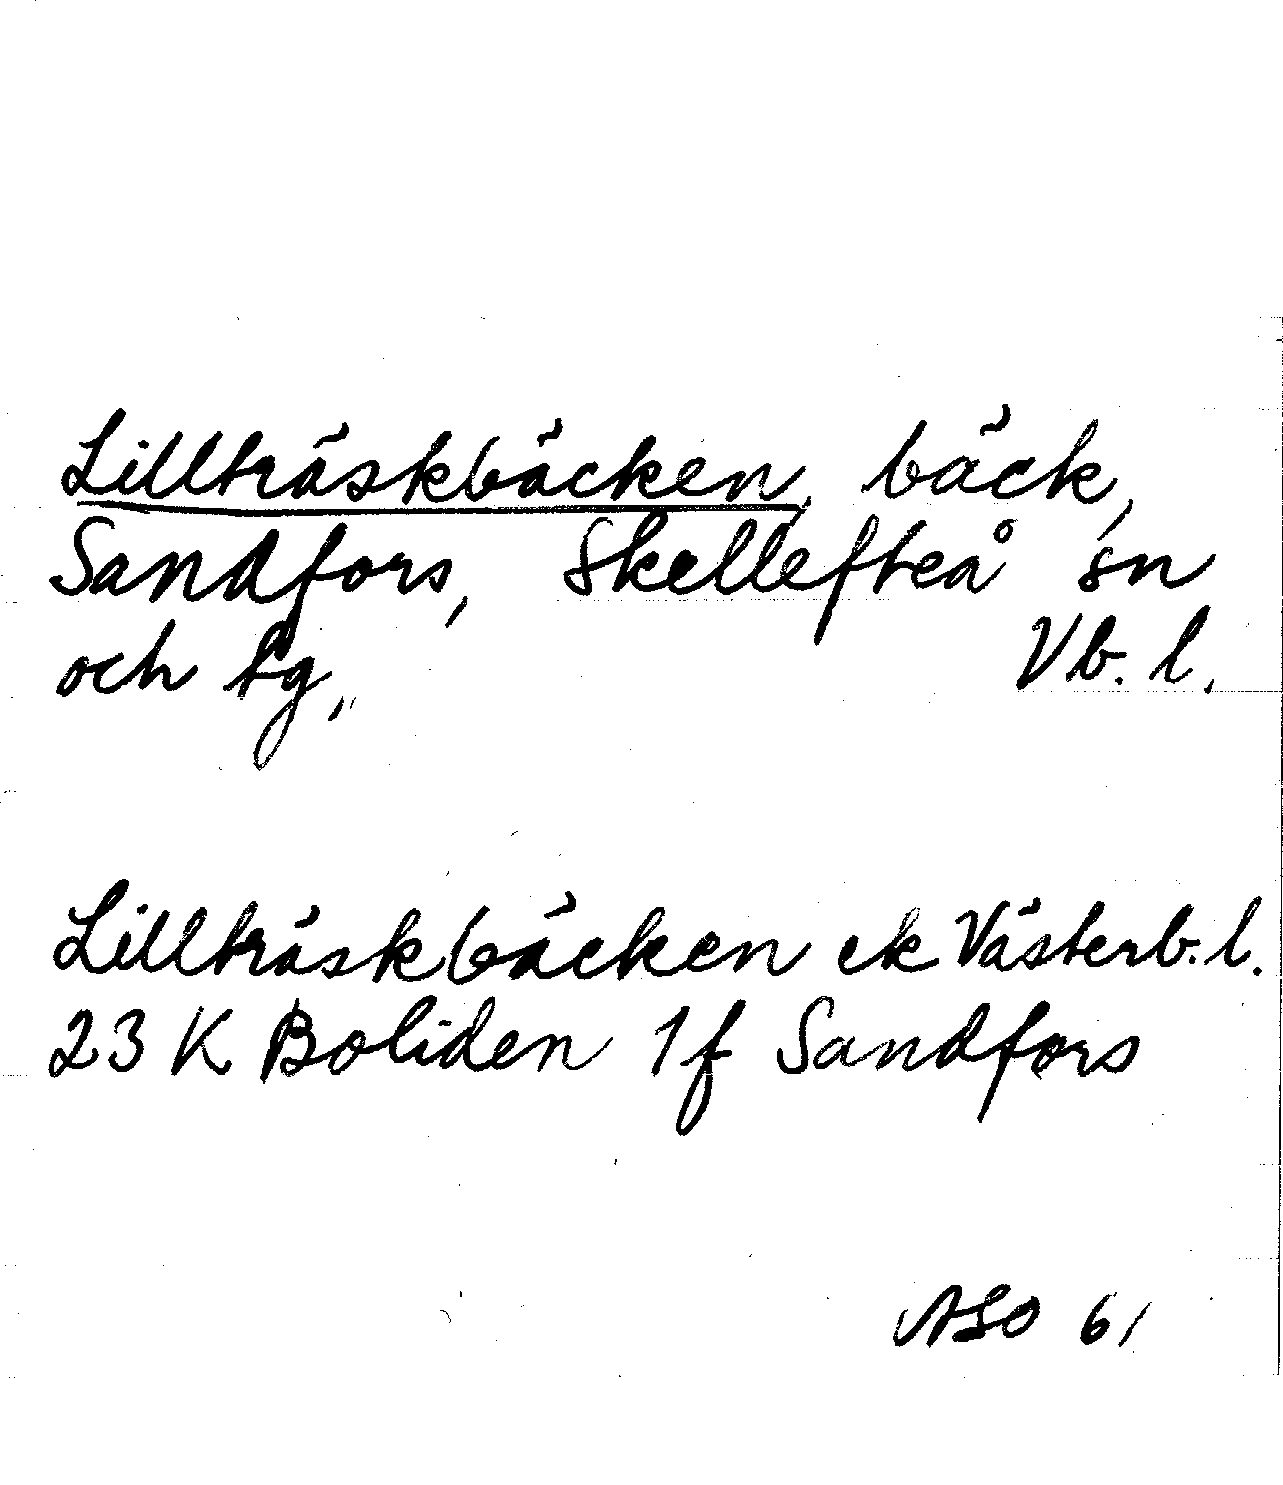 Lillträskbäcken, bäck,
Sandfors, Skellefteå sn
och tg, Vb. l.
Lillträskbäcken ek Västerb. l.
23 K Boliden 1 f Sandfors
ASO 61